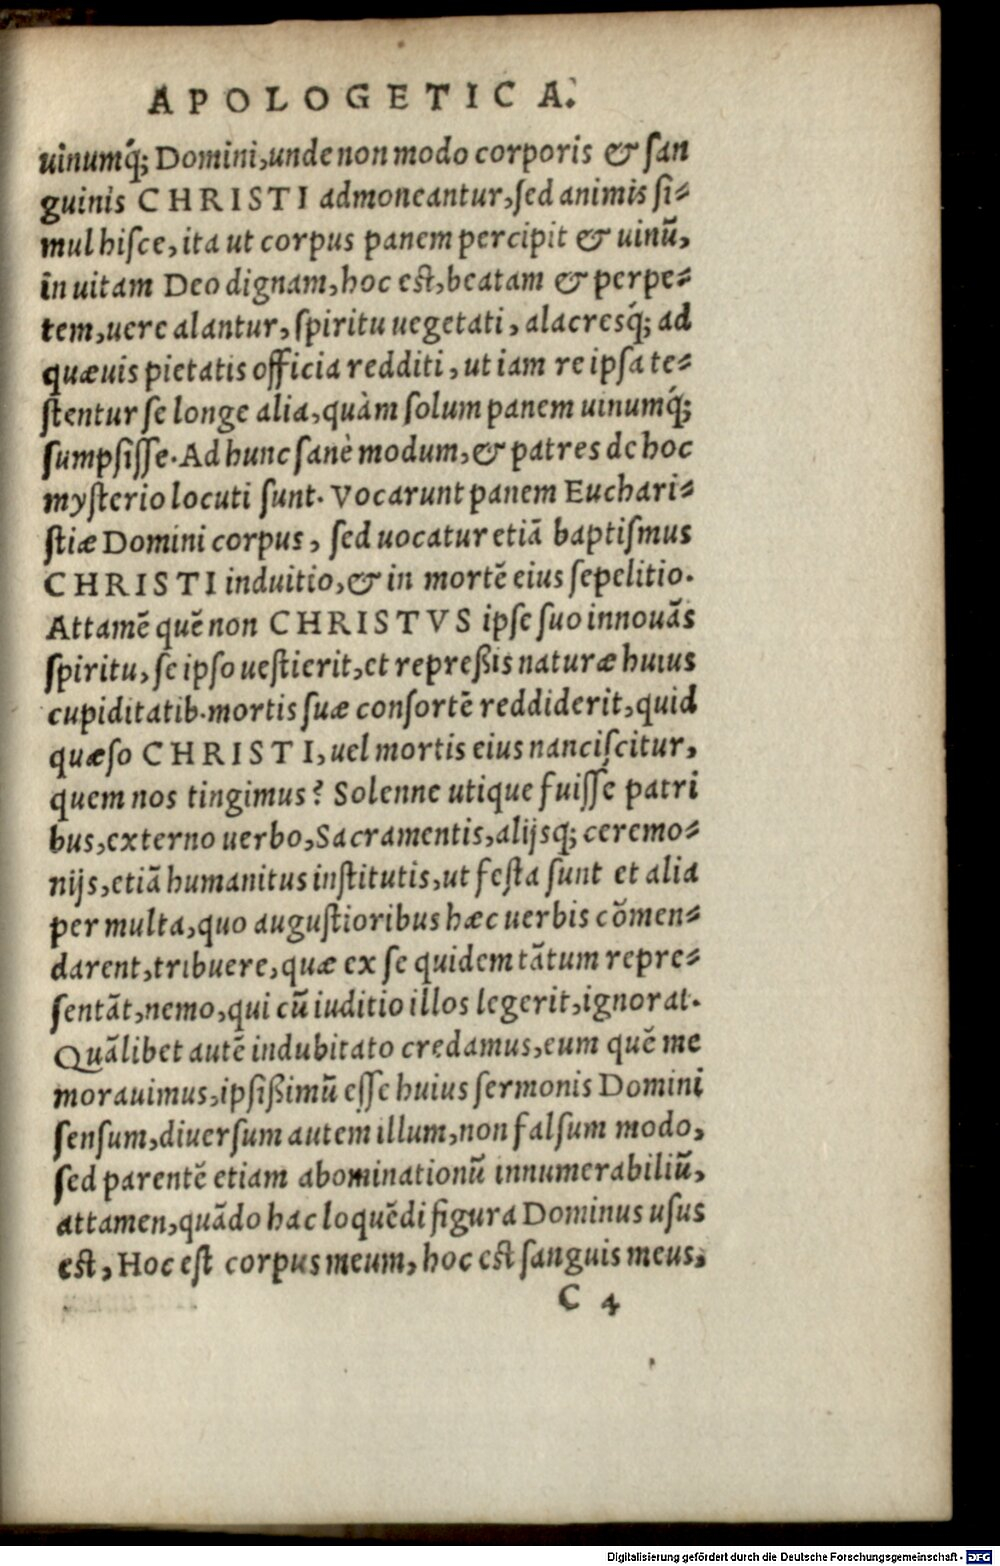 APOLOGETICA.
uinumq́; Domini, unde non modo corporis & ſan
guinis CHRISTI admoneantur, ſed animis ſi-
mul hiſce, ita ut corpus panem percipit & uinũ,
in uitam Deo dignam, hoc eſt, beatam & perpe-
tem, uere alantur, ſpiritu uegetati, alacresq́; ad
quæuis pietatis officia redditi, ut iam re ipſa te-
ſtentur ſe longe alia, quàm ſolum panem uinumq́;
ſumpſiſſe. Ad hunc ſanè modum, & patres de hoc
myſterio locuti ſunt. Vocarunt panem Euchari-
ſtiæ Domini corpus, ſed uocatur etiã baptiſmus
CHRISTI induitio, & in mortẽ eius ſepelitio.
Attamẽ quẽ non CHRISTVS ipſe ſuo innouãs
ſpiritu, ſe ipſo ueſtierit, et repreßis naturæ huius
cupiditatib. mortis ſuæ conſortẽ reddiderit, quid
quæſo CHRISTI, uel mortis eius nanciſcitur,
quem nos tingimus? Solenne utique fuiſſe patri
bus, externo uerbo, Sacramentis, alijsq; ceremo-
nijs, etiã humanitus inſtitutis, ut feſta ſunt et alia
per multa, quo auguſtioribus hæc uerbis cõmen-
darent, tribuere, quæ ex ſe quidem tãtum repre-
ſentãt, nemo, qui cũ iuditio illos legerit, ignorat.
Quãlibet autẽ indubitato credamus, eum quẽ me
morauimus, ipſißimũ eſſe huius ſermonis Domini
ſenſum, diuerſum autem illum, non falſum modo,
ſed parentẽ etiam abominationũ innumerabiliũ,
attamen, quãdo hac loquẽdi figura Dominus uſus
eſt, Hoc eſt corpus meum, hoc eſt ſanguis meus,
C 4
Digitalisierung gefördert durch die Deutsche Forschungsgemeinschaft - DFG